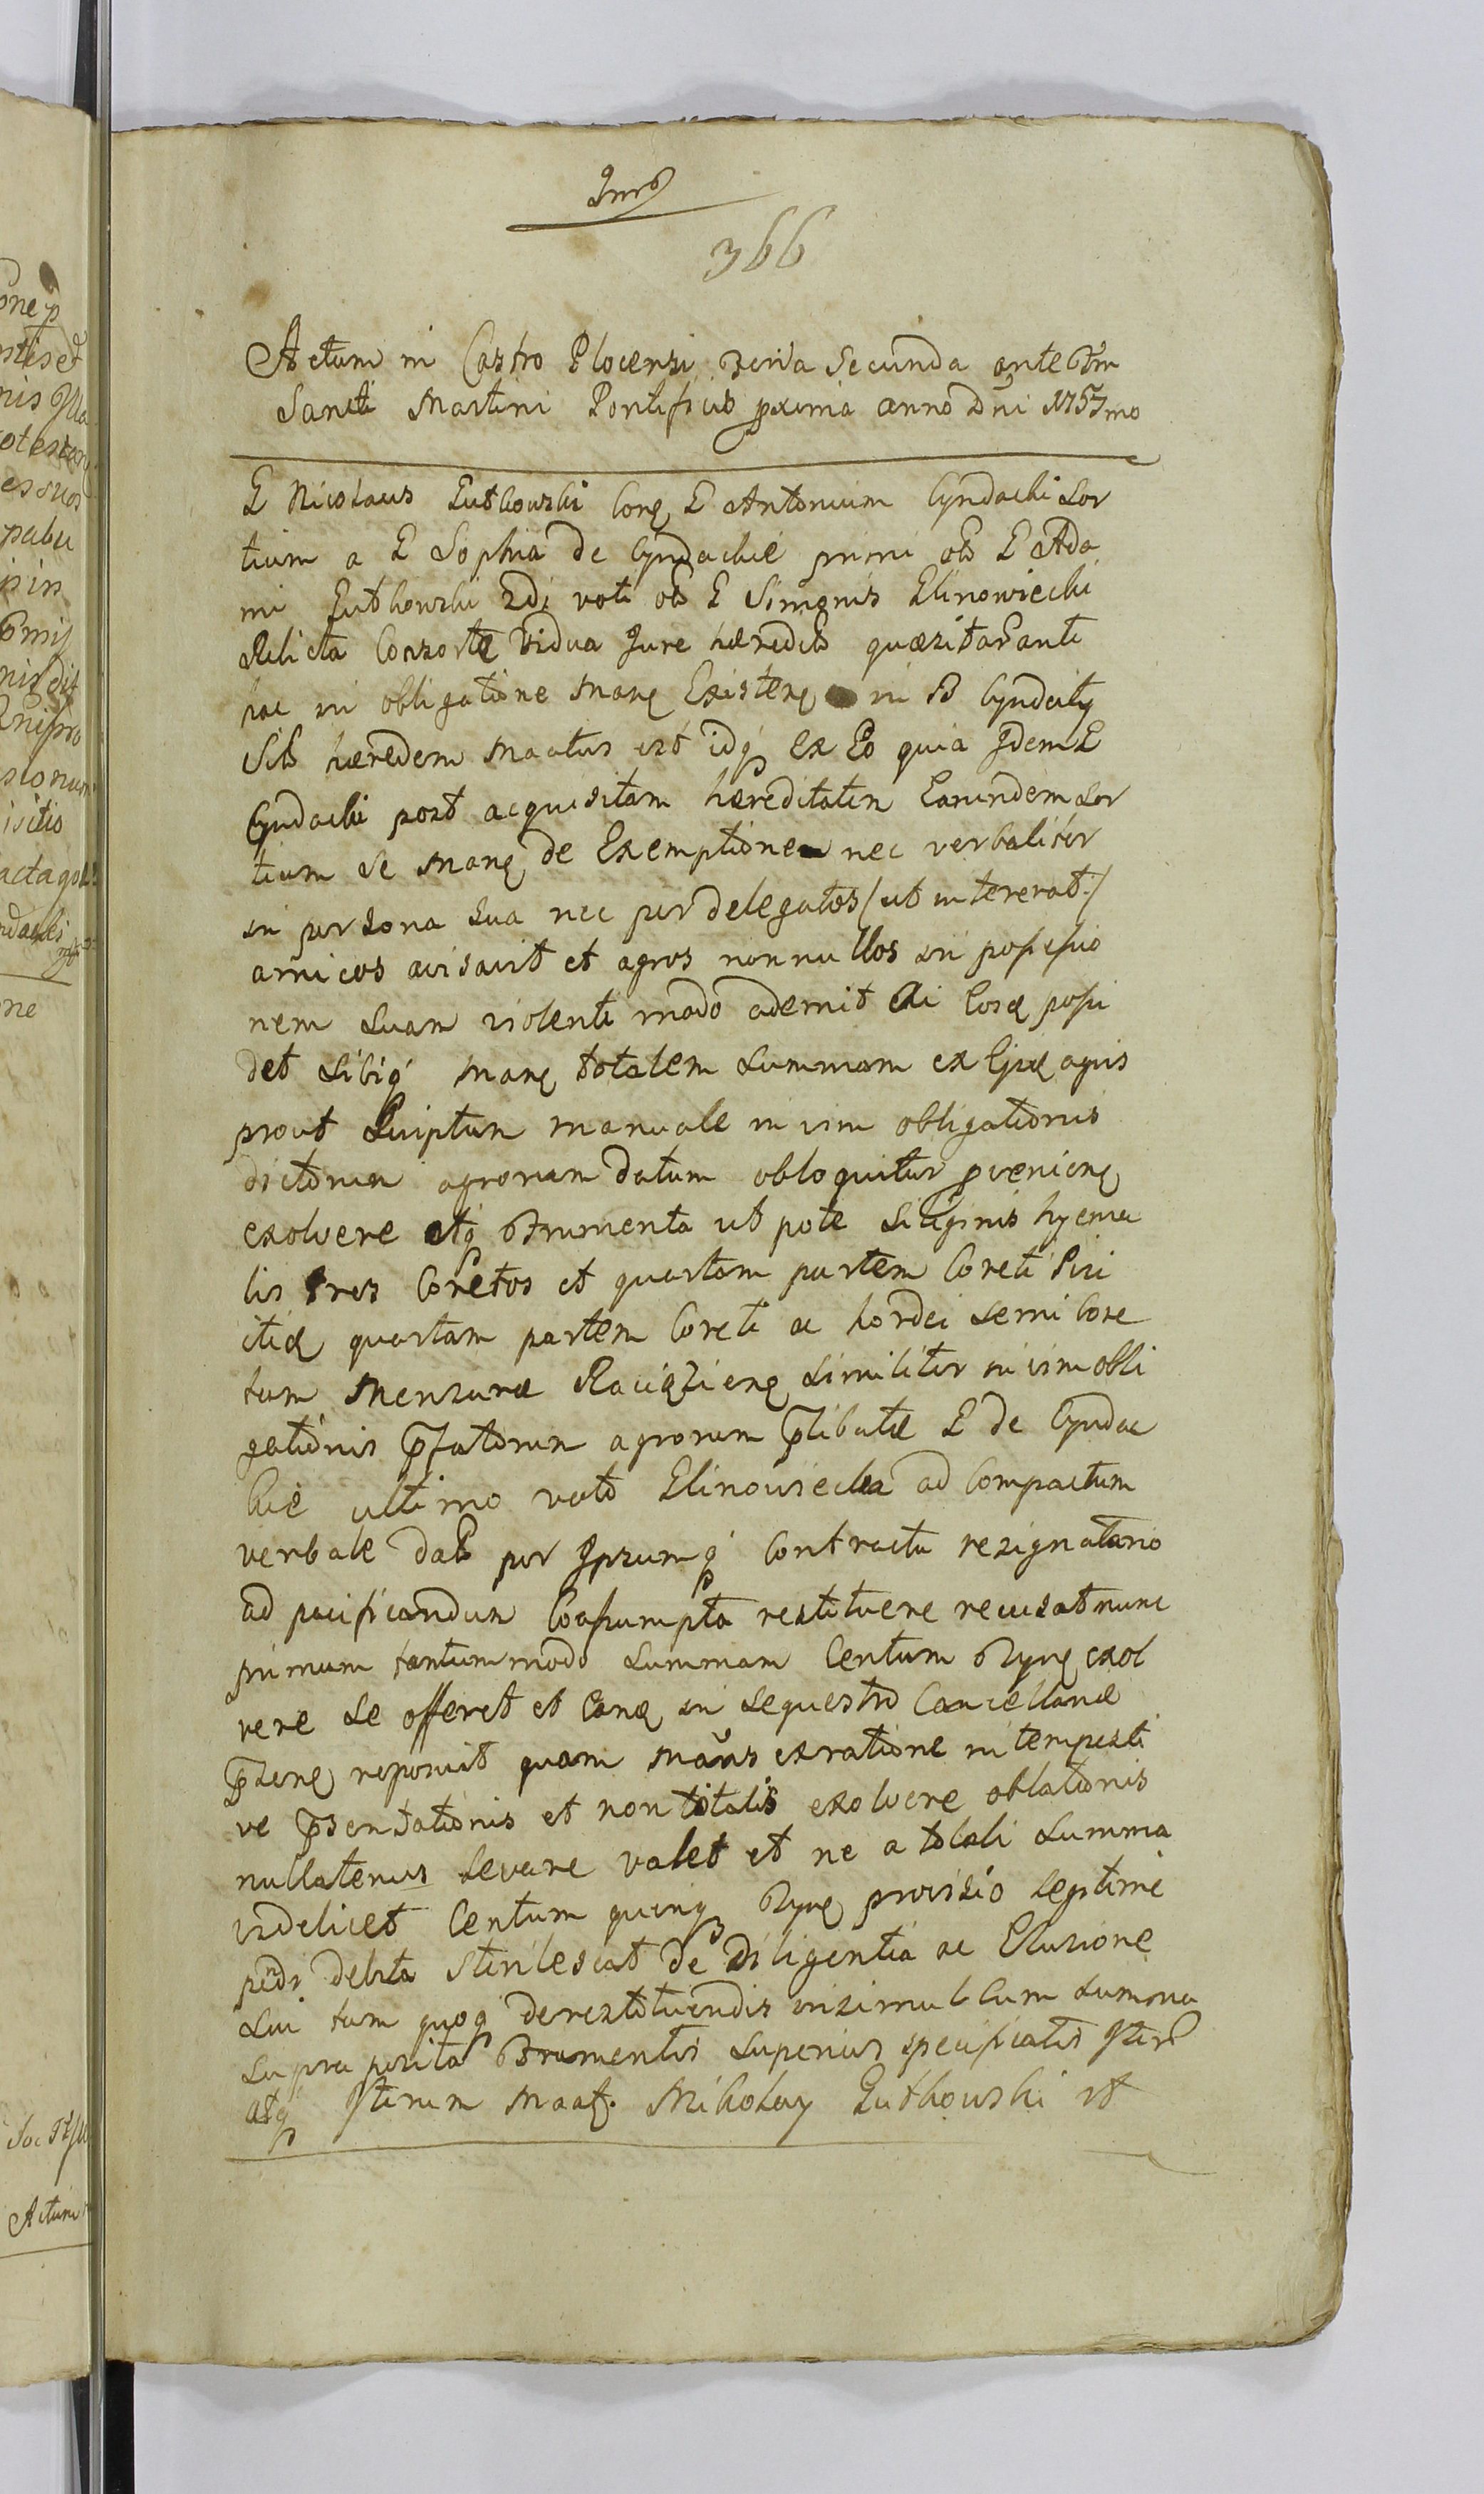 366
Actum in Castro Plocensi Feria Secunda ante Ftm
Sancti Martini Pontificis pxima anno Dni 1757mo
G Nicolaus Gutkowski Corą G Antonium Cyndacki Sor
tium a G Sophia de Cyndackie primi olo G Ada
mi Gutkowski 2di voti olo G Simonis Glinowiecki
Relicta Consorte Vidua Jure hæredilo quæsitar ante
hac in obligatione Maną Existeną in B Cyndaty
Silo hæredem Maatus est idq Ex Eo quia Idem G
Cyndacki post acquisitam hæreditatem Earundem Sor
tium se Maną de Exemptione nec verbaliter
in persona sua nec per delegatos /ut intererat:/
amicos avisavit et agros nonnullos in possessio
nem suam violenti modo ademit Eosq possi
det sibiq Maną totalem summam ex Ejsdę agris
prout Scriptum manuale in vim obligationis
dictorum agrorum datum obloquitur pvenieną
exolvere etq Frumenta utpote siliginis hyema
lis tres Coretos et quartam partem Coreti Tri
tici quartam partem Coreti ac hordei semi Core
tum Mensuræ Raciążieną similiter in vim obli
gationis pfatorum agrorum plibatæ G de Cyndac
kie ultimo voto Glinowiecka ad Compactum
verbale dato per Ipsumq Contractu resignatorio
ad pacificandum Coassumpta restituere recusat nunc
primum tantummodo summam Centum Tyną exol
vere se offeret et Eaną in sequestro Cancellariæ
pseną reposuit quam Maans ex ratione intempesti
ve psentationis et non totalis exolvere oblationis
nullatenus levare valet et ne a totali summa
videlicet Centum quinq Tyną provisio legitime
pndi debita sterilescat de diligentia ac Elusione
sui tum quoq de restituendis insimul cum summa
supra posita Frumentis superius specificatis Iter
atq Iterum Maat. Mikołay Gutkowski rt